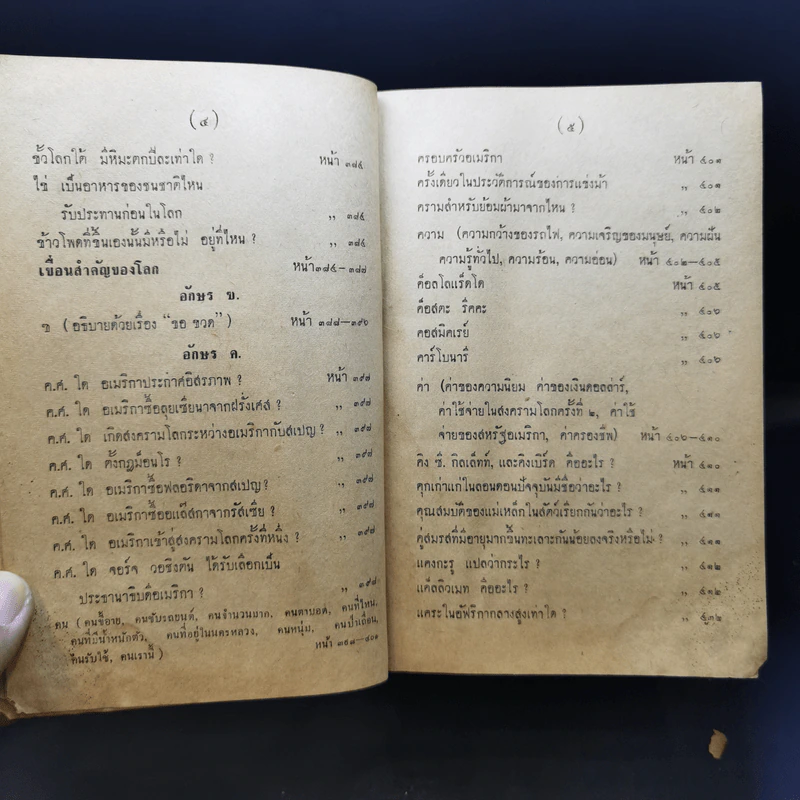 (๔)
ขั้วโลกใต้ มีหิมะตกปีละเท่าใด ? หน้า ๓๘๕
ไข่ เป็นอาหารของชนชาติไหน
รับประทานก่อนในโลก ,, ๓๘๕
ข้าวโพดที่ขึ้นเองนั้นมีหรือไม่ อยู่ที่ไหน ? ,, ๓๘๕
เขื่อนสำคัญของโลก หน้า ๓๘๕–๓๘๗
อักษร ฃ.
ฃ (อธิบายด้วยเรื่อง “ขอ ขวด”) หน้า ๓๘๘–๓๙๖
อักษร ค.
ค.ศ. ใด อเมริกาประกาศอิสรภาพ ? หน้า ๓๙๗
ค.ศ. ใด อเมริกาซื้อลุยเซียนาจากฝรั่งเศส ? ,, ๓๙๗
ค.ศ. ใด เกิดสงครามโลกระหว่างอเมริกากับสเปญ ? ,, ๓๙๗
ค.ศ. ใด ตั้งกฎม็อนโร ? ,, ๓๙๗
ค.ศ. ใด อเมริกาซื้อฟลอริดาจากสเปญ ? ,, ๓๙๗
ค.ศ. ใด อเมริกาซื้ออแล๊สกาจากรัสเซีย ? ,, ๓๙๗
ค.ศ. ใด อเมริกาเข้าสู่สงครามโลกครั้งที่หนึ่ง ? ,, ๓๙๗
ค.ศ. ใด จอร์จ วอชิงตัน ได้รับเลือกเป็น
ประธานาธิบดีอเมริกา ? ,, ๓๙๘
คน (คนขี้อาย, คนขับรถยนต์, คนจำนวนมาก, คนตาบอด, คนที่ไหน,
คนที่มีน้ำหนักตัว, คนที่อยู่ในนครหลวง, คนหนุ่ม, คนป่าเถื่อน,
คนรับใช้, คนเรานี้) หน้า ๓๙๘–๔๐๑
(๕)
ครอบครัวอเมริกา หน้า ๔๐๑
ครั้งเดียวในประวัติการณ์ของการแข่งม้า ,, ๔๐๑
ครามสำหรับย้อมผ้ามาจากไหน ? ,, ๔๐๒
ความ (ความกว้างของรถไฟ, ความเจริญของมนุษย์, ความฝัน
ความรู้ทั่วไป, ความร้อน, ความออน) หน้า ๔๐๒–๔๐๕
ค็อลโลแร็ดโด หน้า ๔๐๕
ค็อสตะ ริคคะ ,, ๔๐๖
คอสมิคเรย์ ,, ๔๐๖
คาร์โบนารี ,, ๔๐๖
ค่า (ค่าของความนิยม ค่าของเงินดอลล่าร์,
ค่าใช้จ่ายในสงครามโลกครั้งที่ ๒, ค่าใช้
จ่ายของสหรัฐอเมริกา, ค่าครองชีพ) หน้า ๔๐๖–๔๑๐
คิง ซี. กิลเล็ทท์, และคิงเบิร์ด คืออะไร ? หน้า ๔๑๐
คุกเก่าแก่ในลอนดอนปัจจุบันมีชื่อว่าอะไร ? ,, ๔๑๑
คุณสมบัติของแม่เหล็กในสัตว์เรียกกันว่าอะไร ? ,, ๔๑๑
คู่สมรสที่มีอายุมากขึ้นทะเลาะกันน้อยลงจริงหรือไม่ ? ,, ๔๑๑
แคงกะรู แปลว่ากระไร ? ,, ๔๑๒
แค็ลลิวเมท คืออะไร ? ,, ๔๑๒
แคระในอัฟริกากลางสูงเท่าใด ? ,, ๔๑๒